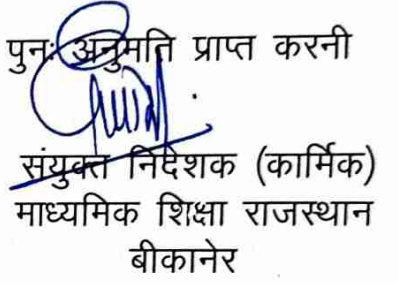 पुनः अनुमति प्राप्त करनी
संयुक्त निदेशक (कार्मिक)
माध्यमिक शिक्षा राजस्थान
बीकानेर